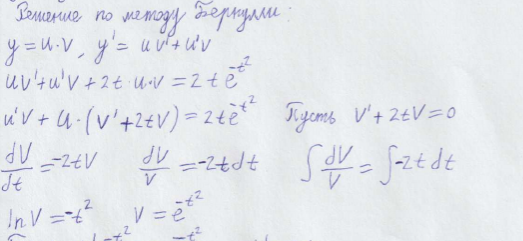 Решение по методу Бернулли:
y = u·v, y' = uv' + u'v
uv' + u'v + 2t·u·v = 2te^{-t^2}
u'v + u·(v' + 2tv) = 2te^{-t^2} Пусть v' + 2tv = 0
dv/dt = -2tv dv/v = -2tdt ∫dv/v = ∫-2tdt
ln v = -t^2 v = e^{-t^2}